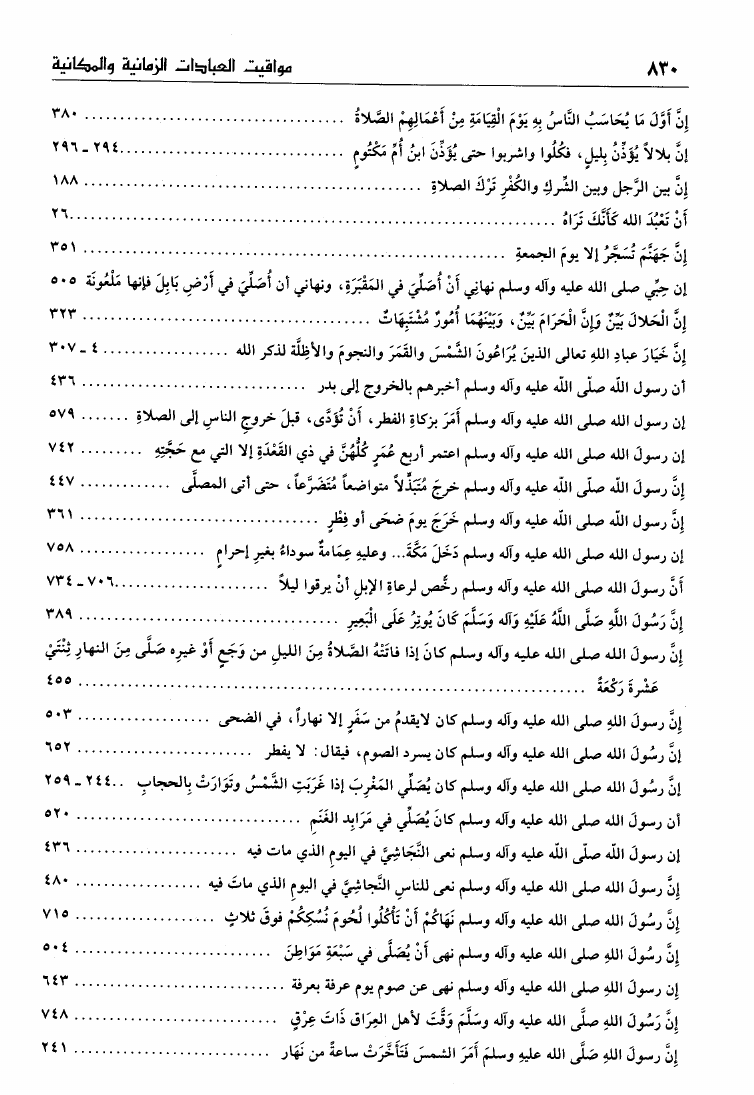 ٨٣٠ مواقيت العبادات الزمانية والمكانية
إنَّ أَوَّلَ مَا يُحَاسَبُ النَّاسُ بِهِ يَوْمَ الْقِيَامَةِ مِنْ أَعْمَالِهِمْ الصَّلاةُ ........................ ٣٨٠
إنَّ بلالاً يُؤَذِّنُ بِليلٍ، فكُلُوا واشربوا حتى يُؤَذِّنَ ابنُ أُمِّ مَكْتُومٍ ........................ ٢٩٤ - ٢٩٦
إنَّ بين الرَّجل وبين الشِّركِ والكُفْرِ تَرْكَ الصلاةِ ........................ ١٨٨
أَنْ تَعْبُدَ الله كَأَنَّكَ تَرَاهُ ........................ ٢٦
إنَّ جَهَنَّمَ تُسَجَّرُ إلا يومَ الجمعةِ ........................ ٣٥١
إن حِبِّي صلى الله عليه وآله وسلم نهانِي أَنْ أُصَلِّيَ في المَقْبَرَةِ، ونهاني أن أُصَلِّيَ في أَرْضِ بَابِلَ فإنها مَلْعُونَة ٥٠٥
إنَّ الْحَلالَ بَيِّنٌ وَإِنَّ الْحَرَامَ بَيِّنٌ، وَبَيْنَهُمَا أُمُورٌ مُشْتَبِهَاتٌ ........................ ٣٢٣
إنَّ خَيَارَ عبادِ اللهِ تعالى الذينَ يُرَاعُونَ الشَّمْسَ والقَمَرَ والنجومَ والأظِلَّة لذكر الله ................ ٤ - ٣٠٧
أن رسول الله صلّى الله عليه وآله وسلم أخبرهم بالخروج إلى بدر ........................ ٤٣٦
إن رسول الله صلى الله عليه وآله وسلم أَمَرَ بزكاةِ الفطر، أَنْ تُؤَدَّى، قبلَ خروجِ الناسِ إلى الصلاةِ ....... ٥٧٩
إن رسولَ الله صلى الله عليه وآله وسلم اعتمر أربع عُمَرٍ كُلُّهُنَّ في ذي القَعْدَةِ إلا التي مع حَجَّتِهِ ......... ٧٤٢
إنَّ رسولَ الله صلّى الله عليه وآله وسلم خرجَ مُتَبَذِّلاً متواضعاً مُتَضَرِّعاً، حتى أتى المصلَّى ............. ٤٤٧
إنَّ رسولَ الله صلى الله عليه وآله وسلم خَرَجَ يومَ ضحَى أو فِطْرٍ ........................ ٣٦١
إن رسول الله صلى الله عليه وآله وسلم دَخَلَ مَكَّةَ... وعليهِ عِمَامةٌ سوداءُ بغيرِ إحرامٍ ................ ٧٥٨
أنَّ رسولَ الله صلى الله عليه وآله وسلم رخَّص لرعاةِ الإبلِ أنْ يرقوا ليلاً ................ ٧٠٦ - ٧٣٤
إنَّ رَسُولَ اللَّهِ صَلَّى اللَّهُ عَلَيْهِ وَآله وَسَلَّمَ كَانَ يُوتِرُ عَلَى الْبَعِيرِ ........................ ٣٨٩
إنَّ رسولَ الله صلى الله عليه وآله وسلم كانَ إذا فاتَتْهُ الصَّلاةُ مِنَ الليلِ من وَجَعٍ أَوْ غيرِه صَلَّى مِنَ النهارِ ثِنْتَيْ
عَشْرةَ رَكْعَةً ........................ ٤٥٥
إنَّ رسولَ اللهِ صلى الله عليه وآله وسلم كان لايقدمُ من سَفَرٍ إلا نهاراً، في الضحى ................ ٥٠٣
إنَّ رسُولَ الله صلى الله عليه وآله وسلم كان يسرد الصوم، فيقال: لا يفطر ................ ٦٥٢
إنَّ رسُولَ الله صلى الله عليه وآله وسلم كان يُصَلِّي المَغْرِبَ إذا غَرَبَتِ الشَّمْسُ وتَوَارَتْ بِالحجابِ ..٢٤٤ - ٢٥٩
أن رسولَ الله صلى الله عليه وآله وسلم كانَ يُصَلِّي في مَرَابِد الغَنَمِ ........................ ٥٢٠
إن رسول الله صلّى الله عليه وآله وسلم نعى النَّجَاشِيَّ في اليومِ الذي مات فيه ................ ٤٣٦
إنَّ رسولَ الله صلى الله عليه وآله وسلم نعى للناسِ النَّجاشِيَّ في اليومِ الذي ماتَ فيه ................ ٤٨٠
إنَّ رسُولَ اللهِ صلى الله عليه وآله وسلم نَهَاكُمْ أَنْ تَأْكُلُوا لُحُومَ نُسُكِكُمْ فوقَ ثلاثٍ ................ ٧١٥
إنَّ رسُولَ اللهِ صلى الله عليه وآله وسلم نهى أَنْ يُصَلَّى في سَبْعَةِ مَوَاطِنَ ........................ ٥٠٤
إن رسولَ الله صلى الله عليه وآله وسلم نهى عن صوم يوم عرفة بعرفة ........................ ٦٤٣
إنَّ رَسُولَ اللهِ صلَّى الله عليه وآله وسَلَّمَ وَقَّتَ لأهل العِرَاق ذَاتَ عِرْقٍ ........................ ٧٤٨
إنَّ رسولَ اللهِ صَلَّى الله عليهِ وسلمَ أمَرَ الشمسَ فَتَأَخَّرَتْ ساعةً من نَهَار ................ ٢٤١